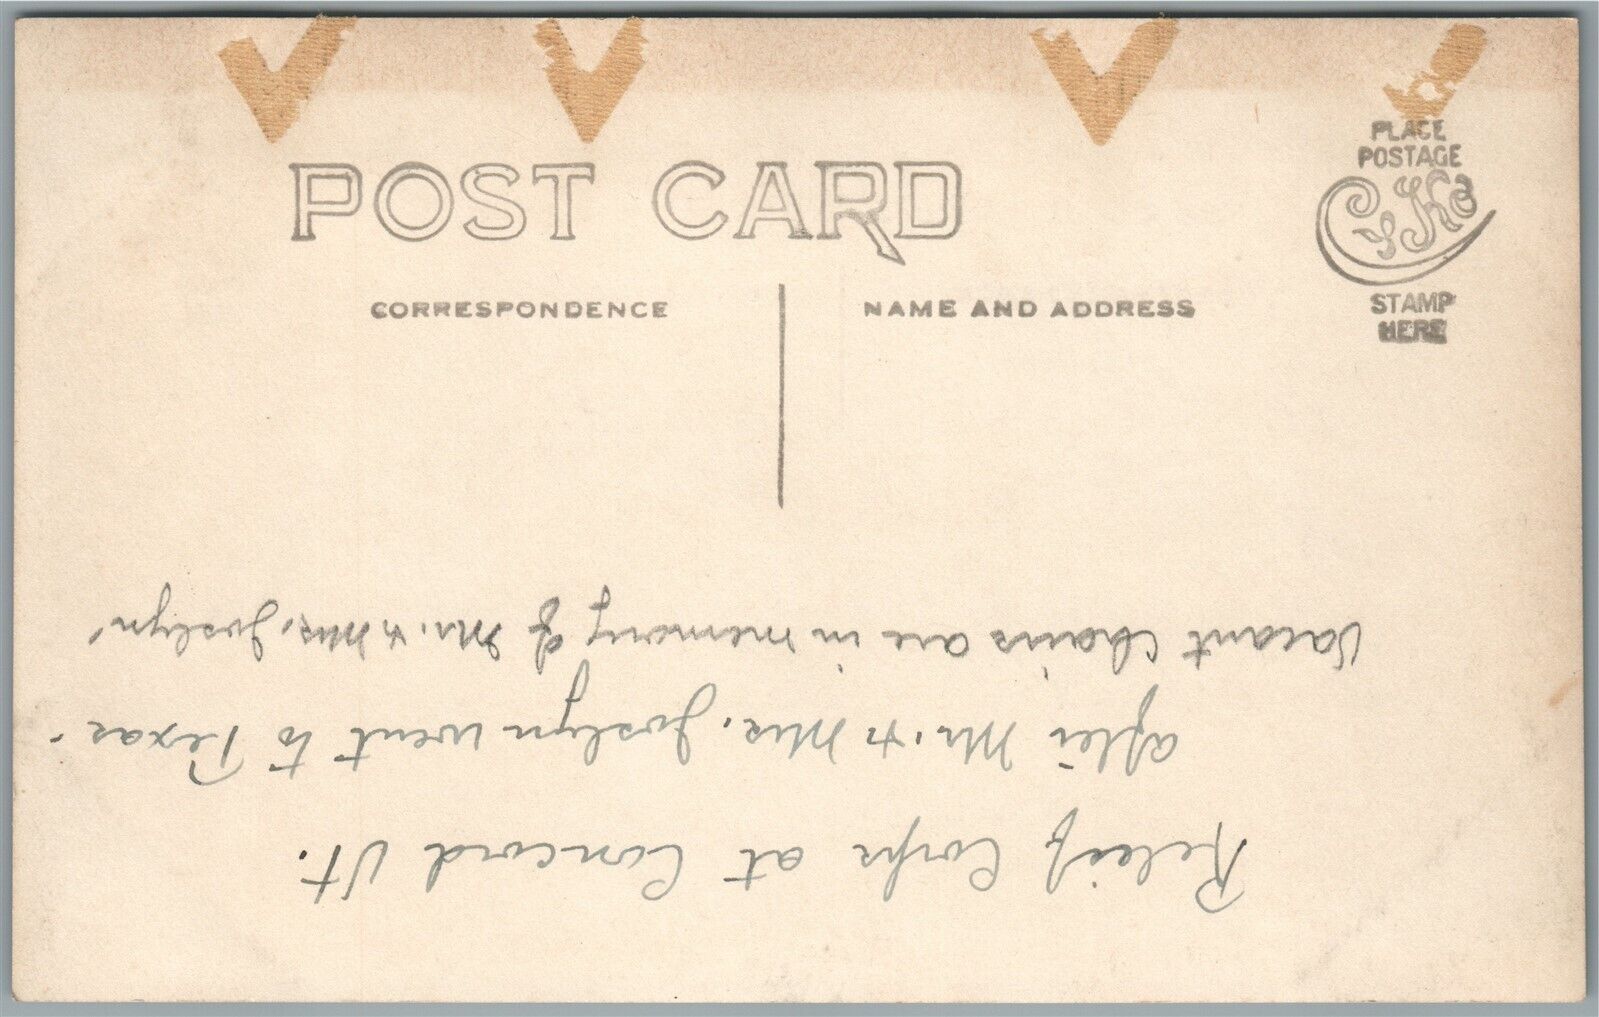 PLACE
POSTAGE
CYKO
STAMP
HERE
POST CARD
CORRESPONDENCE
NAME AND ADDRESS
Releif Corps at Concord Vt.
after Mr. & Mrs. Joslyn went to Texas.
Vacant Chairs are in memory of Mr. & Mrs. Joslyn.